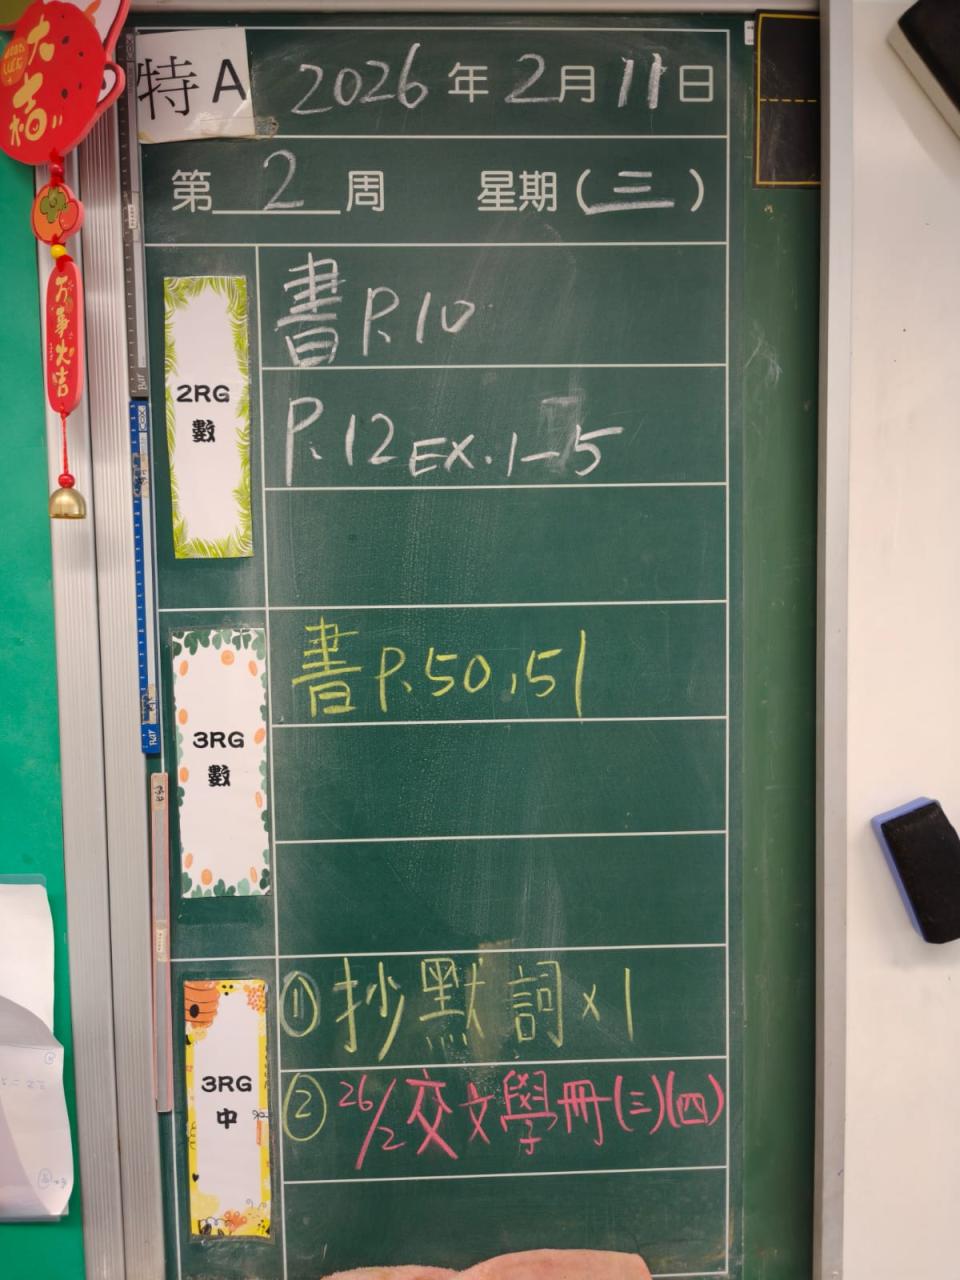 大吉
万事大吉
特A
2026年2月11日
第2周 星期(三)
2RG
數
書P.10
P.12 EX.1-5
3RG
數
書P.50,51
3RG
中
①抄默詞×1
②26/2交文學冊(三)(四)